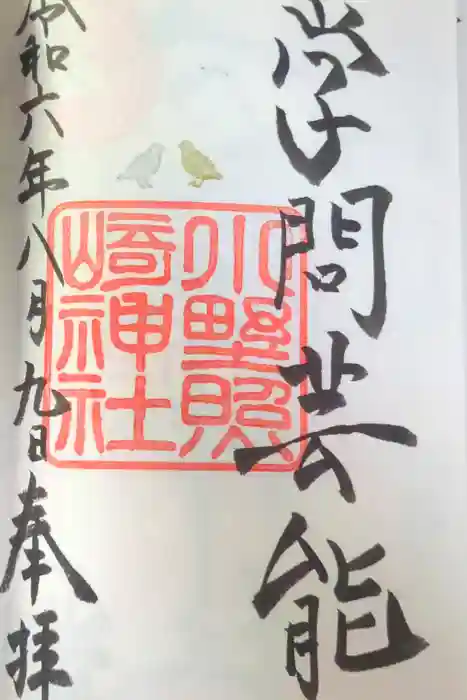 学問芸能
小野照
崎神社
令和六年八月九日奉拝